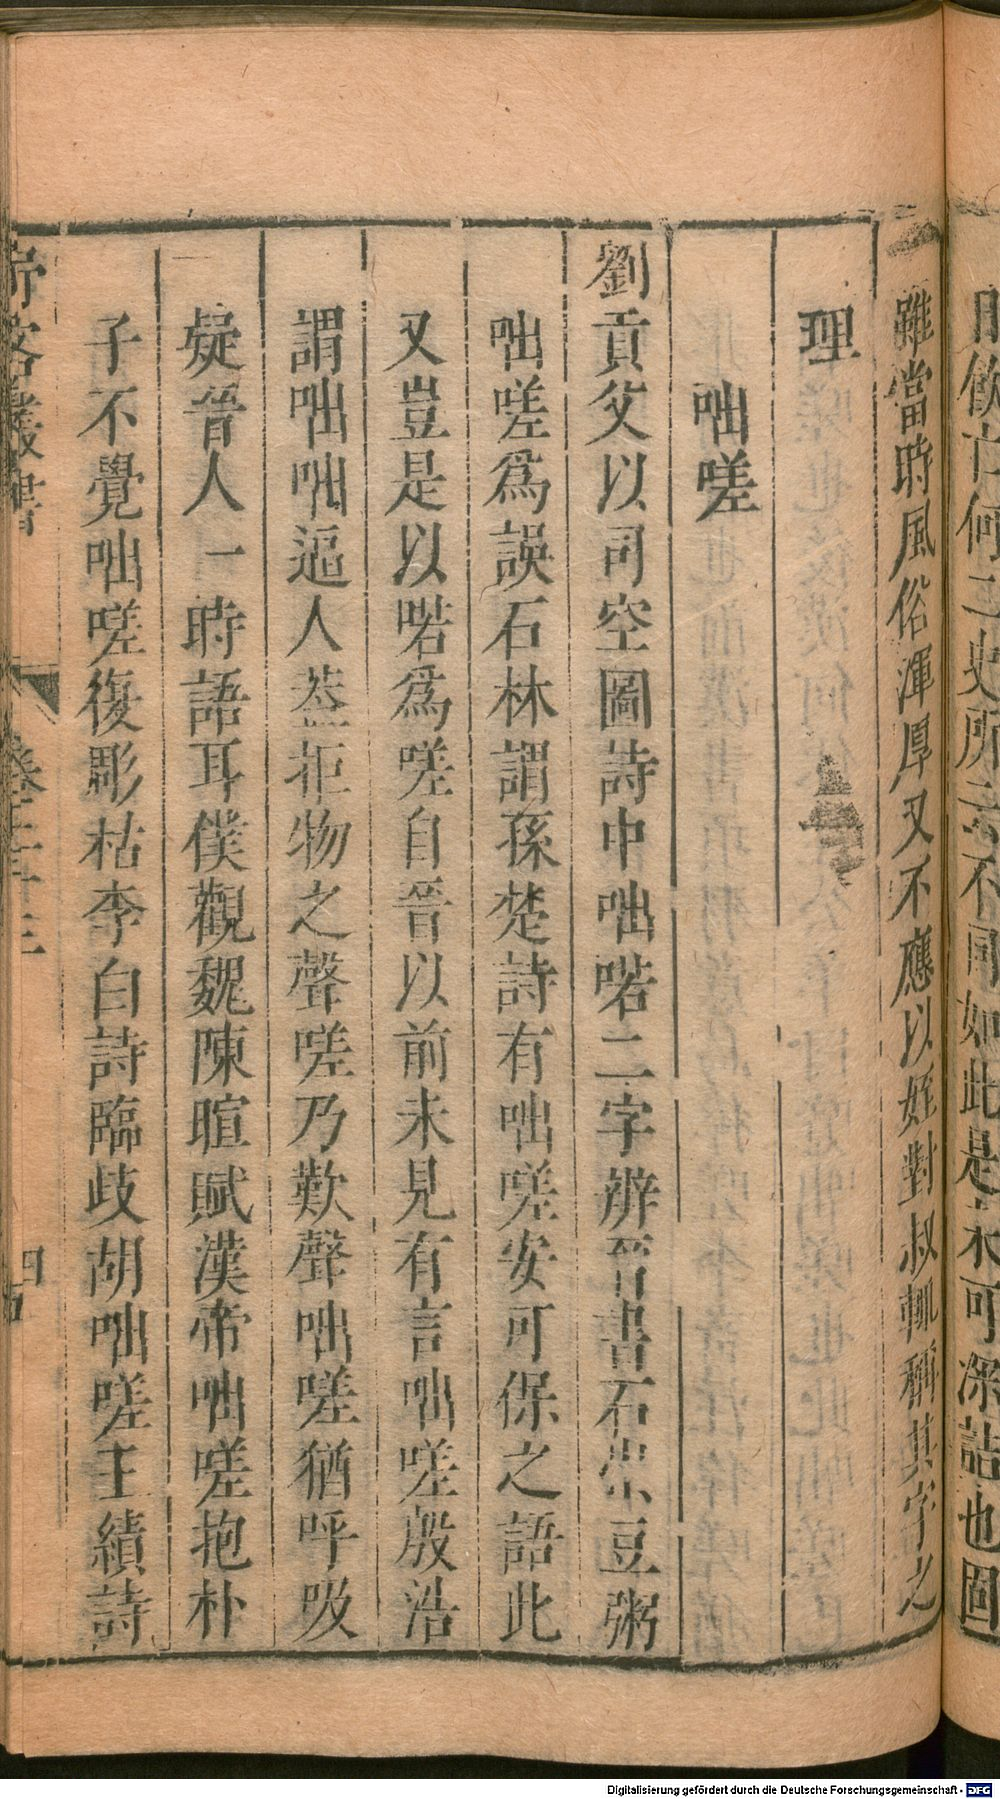 雖當時風俗渾厚又不應以姪對叔輒稱其字之
理
咄嗟
劉貢父以司空圖詩中咄喏二字辨晉書石崇豆粥
咄嗟爲誤石林謂孫楚詩有咄嗟安可保之語此
又豈是以喏爲嗟自晉以前未見有言咄嗟殷浩
謂咄咄逼人葢拒物之聲嗟乃歎聲咄嗟猶呼吸
疑晉人一時語耳僕觀魏陳暄賦漢帝咄嗟抱朴
子不覺咄嗟復彫枯李白詩臨歧胡咄嗟王績詩
客叢書
卷二十三
Digitalisierung gefördert durch die Deutsche Forschungsgemeinschaft - DFG